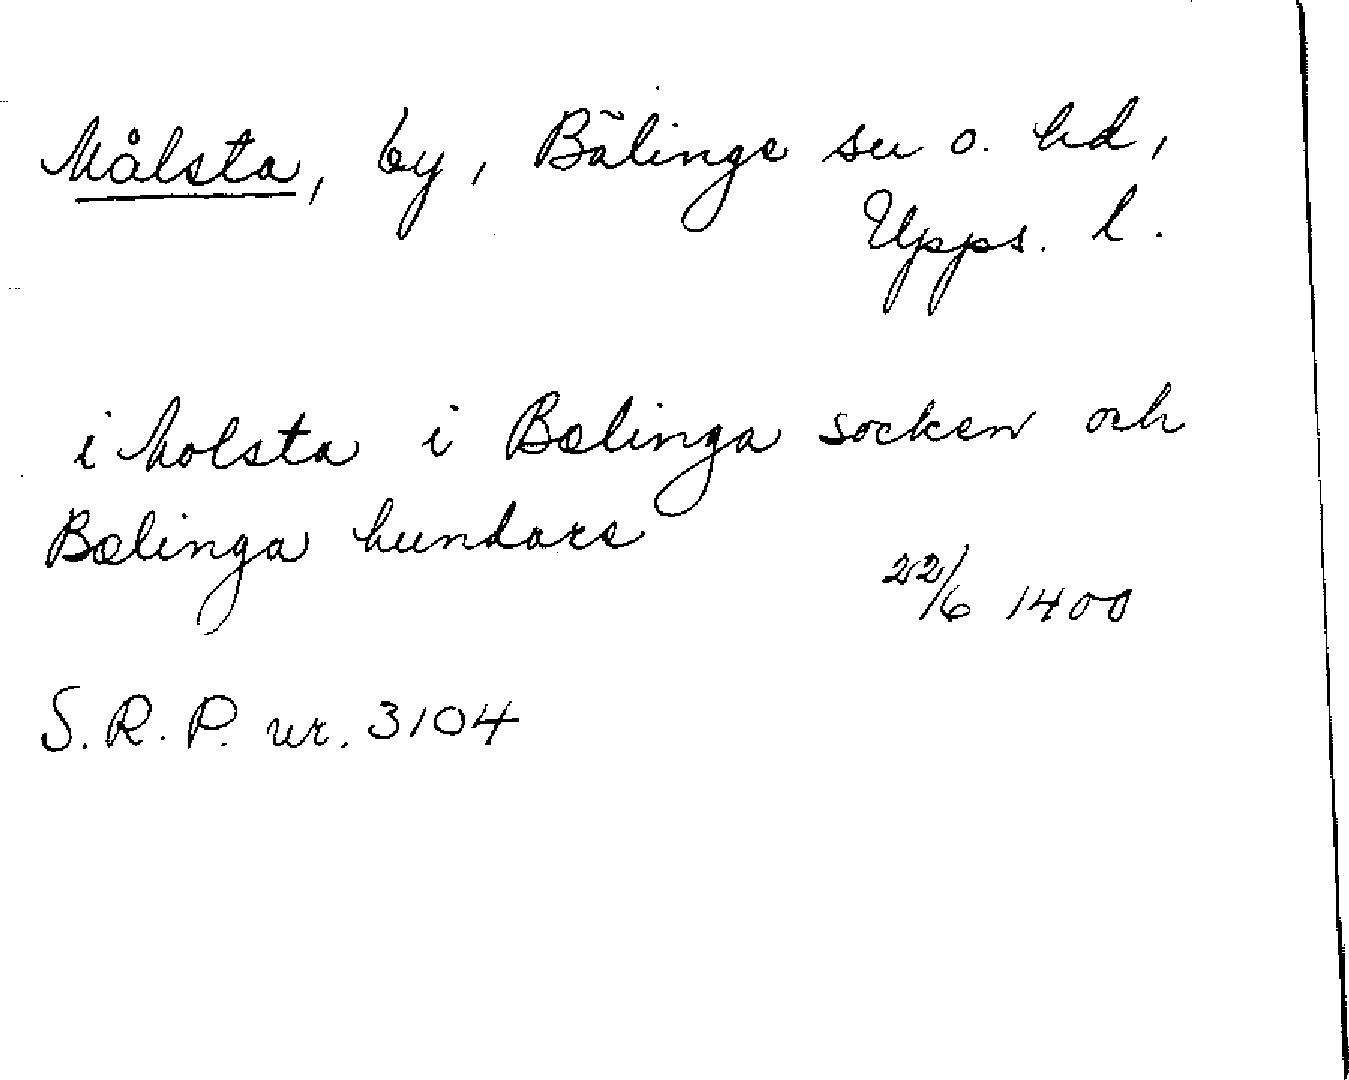 Målsta, by, Bälinge sn o. hd,
Upps. l.
i Molsta i Bælinga socken och
Bælinga hundare
22/6 1400
S.R.P. nr. 3104